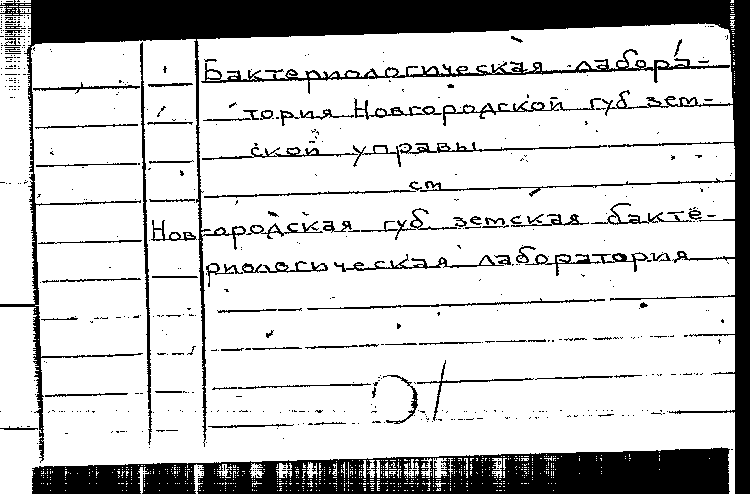 Бактериологическая лабора-
тория Новгородской губ зем-
ской управы
см
Новгородская губ земская бакте-
риологическая лаборатория